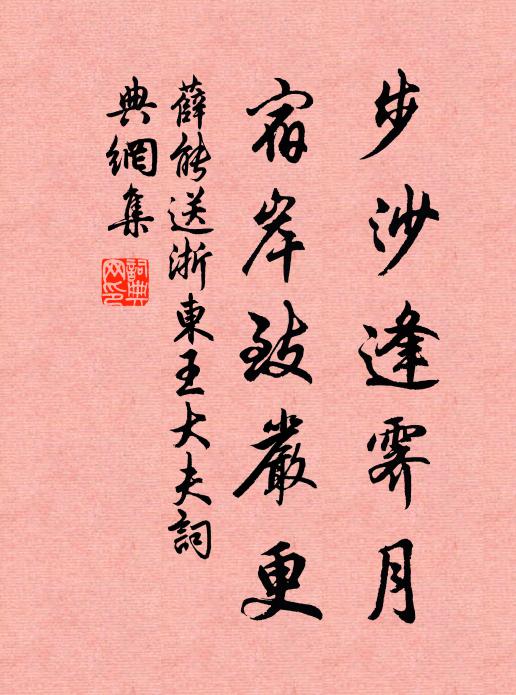 步沙逢霽月
宿岸致嚴更
薛能送浙東王大夫詞
典網集
詞典
网印